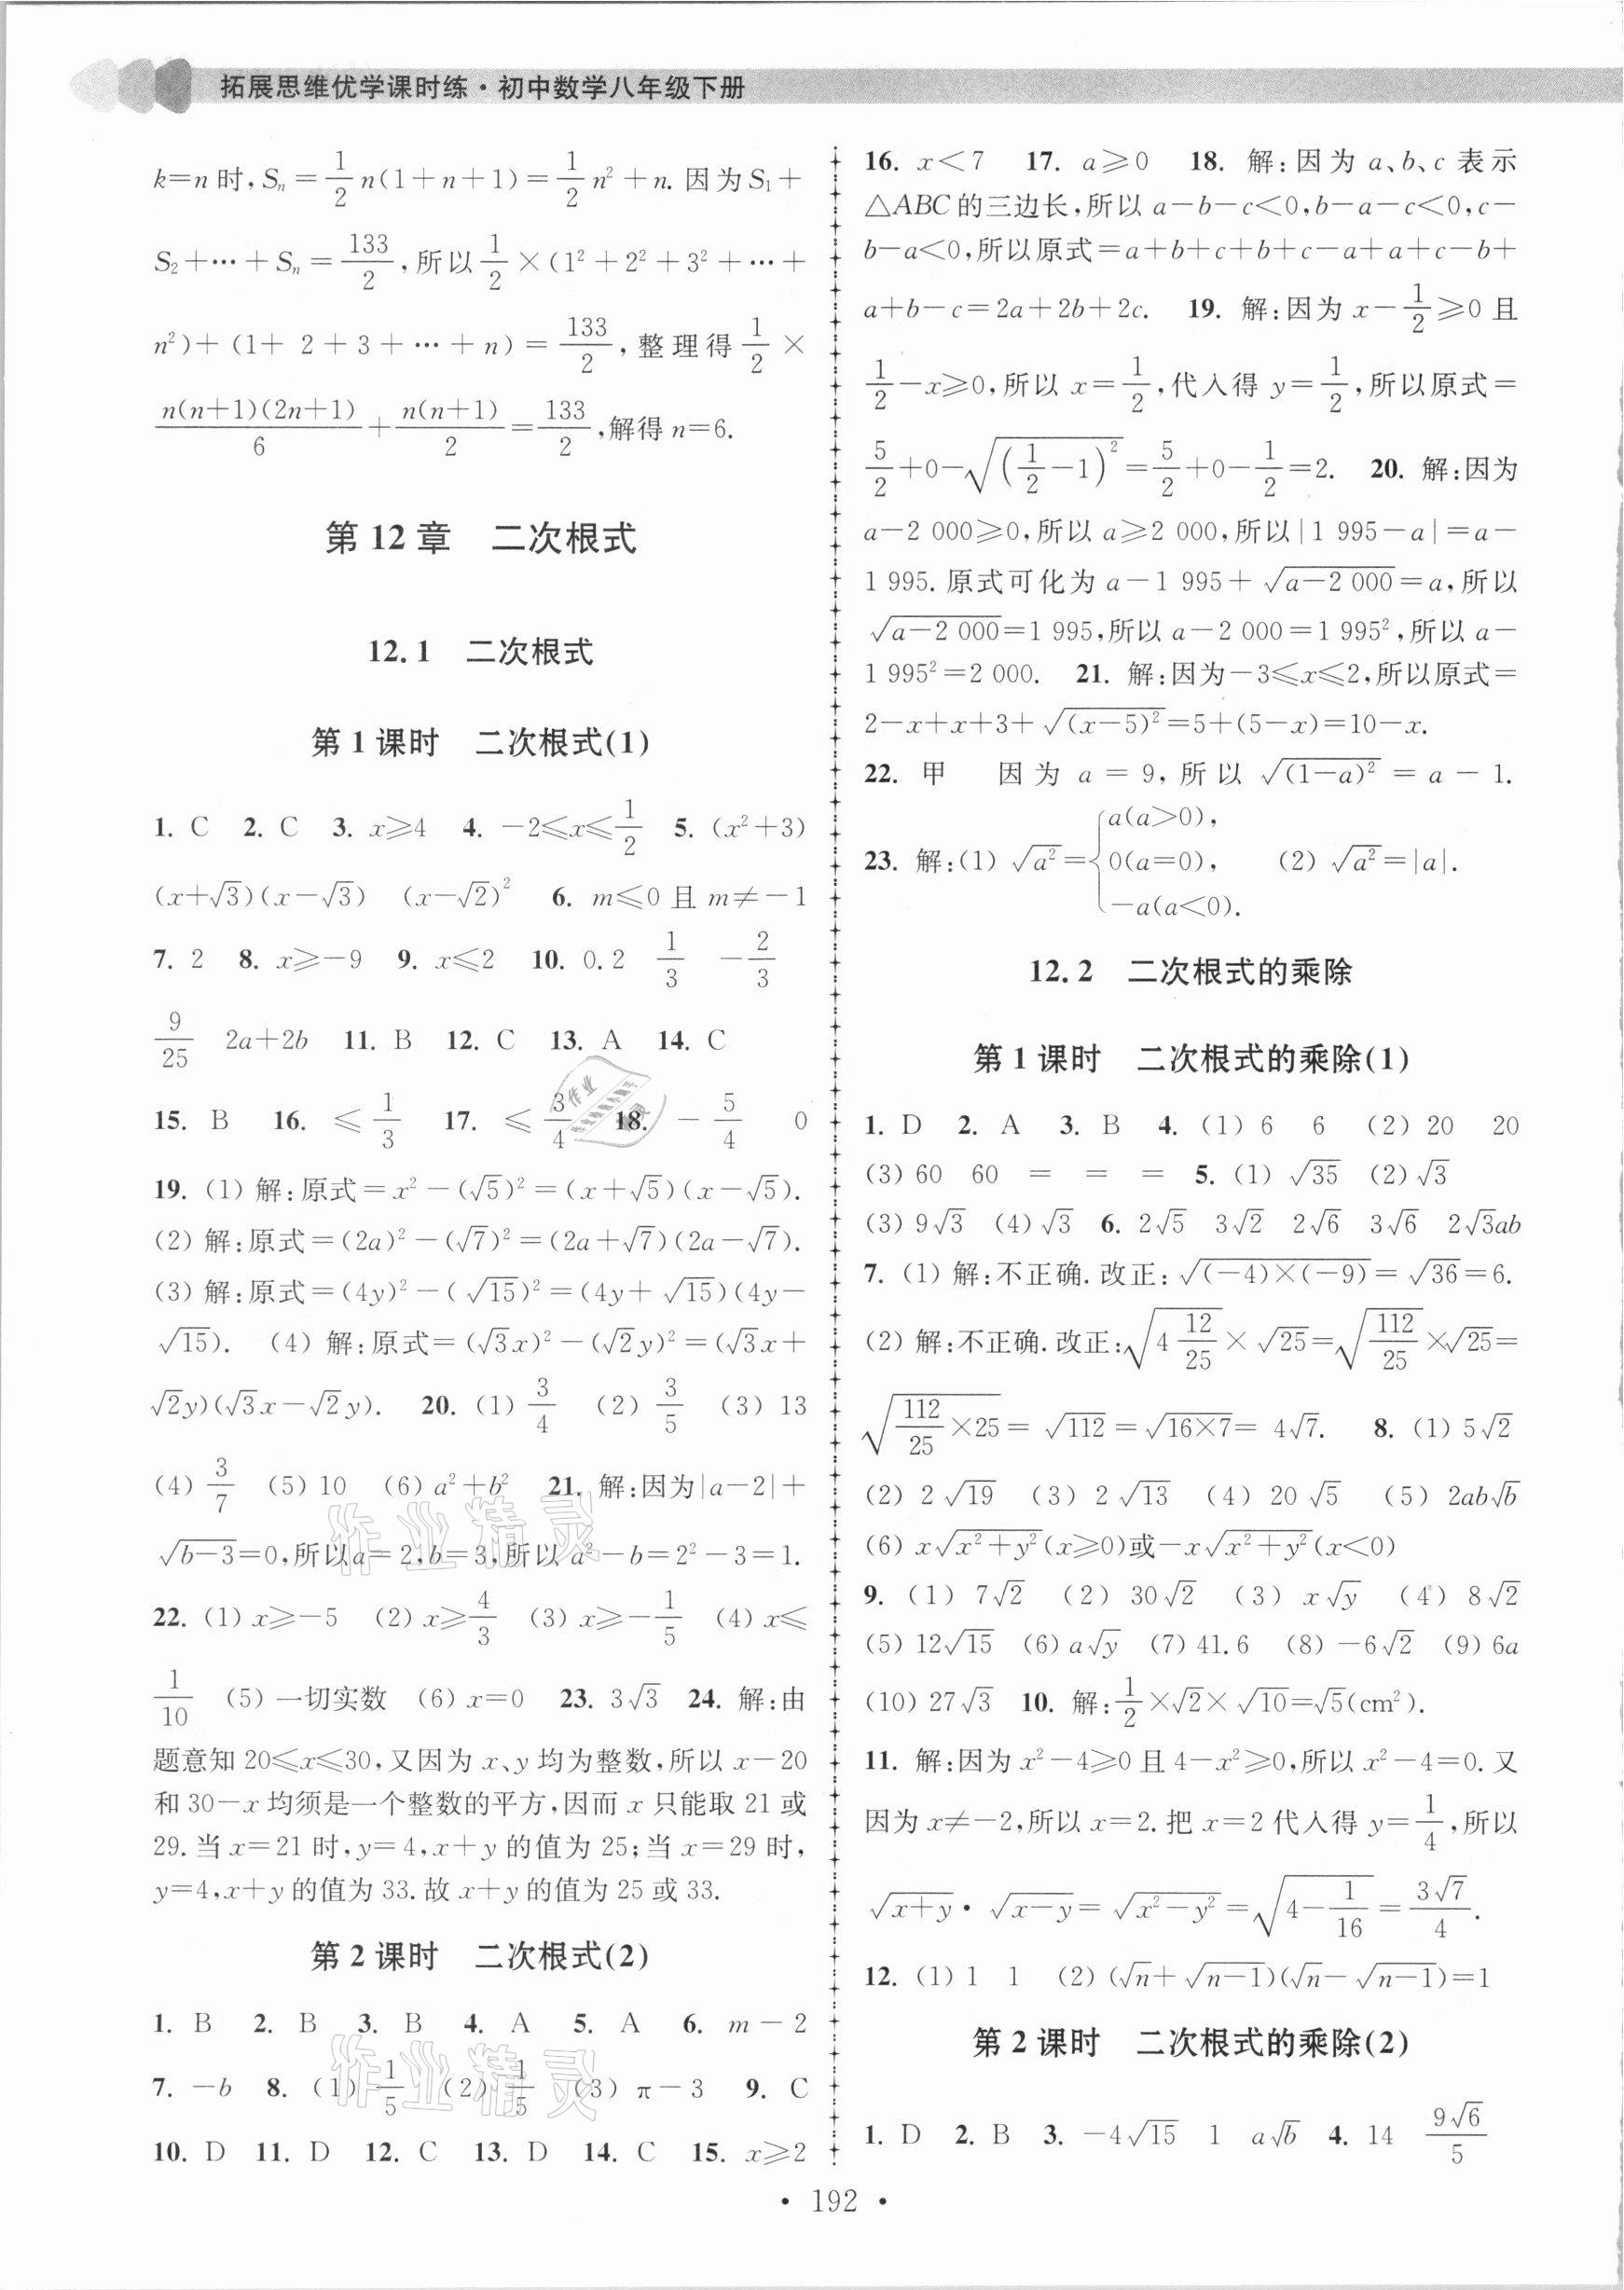 拓展思维优学课时练·初中数学八年级下册
k=n 时, Sₙ = 1/2 n(1+n+1) = 1/2 n² + n. 因为 S₁ +
S₂ + ⋯ + Sₙ = 133/2, 所以 1/2 × (1² + 2² + 3² + ⋯ +
n²) + (1 + 2 + 3 + ⋯ + n) = 133/2, 整理得 1/2 ×
n(n+1)(2n+1)/6 + n(n+1)/2 = 133/2, 解得 n=6.
第 12 章 二次根式
12.1 二次根式
第 1 课时 二次根式(1)
1. C 2. C 3. x≥4 4. −2≤x≤1/2 5. (x²+3)
(x+√3)(x−√3) (x−√2)² 6. m≤0 且 m≠−1
7. 2 8. x≥−9 9. x≤2 10. 0.2 1/3 −2/3
9/25 2a+2b 11. B 12. C 13. A 14. C
15. B 16. ≤1/3 17. ≤3/4 18. −5/4 0
19. (1) 解:原式=x²−(√5)²=(x+√5)(x−√5).
(2) 解:原式=(2a)²−(√7)²=(2a+√7)(2a−√7).
(3) 解:原式=(4y)²−(√15)²=(4y+√15)(4y−
√15). (4) 解:原式=(√3x)²−(√2y)²=(√3x+
√2y)(√3x−√2y). 20. (1) 3/4 (2) 3/5 (3) 13
(4) 3/7 (5) 10 (6) a²+b² 21. 解:因为|a−2|+
√(b−3)=0,所以a=2,b=3,所以 a²−b=2²−3=1.
22. (1) x≥−5 (2) x≥4/3 (3) x≥−1/5 (4) x≤
1/10 (5) 一切实数 (6) x=0 23. 3√3 24. 解:由
题意知 20≤x≤30,又因为 x、y 均为整数,所以 x−20
和 30−x 均须是一个整数的平方,因而 x 只能取 21 或
29. 当 x=21 时,y=4,x+y 的值为 25;当 x=29 时,
y=4,x+y 的值为 33. 故 x+y 的值为 25 或 33.
第 2 课时 二次根式(2)
1. B 2. B 3. B 4. A 5. A 6. m−2
7. −b 8. (1) 1/5 (2) 1/5 (3) π−3 9. C
10. D 11. D 12. C 13. D 14. C 15. x≥2
16. x<7 17. a≥0 18. 解:因为 a、b、c 表示
△ABC 的三边长,所以 a−b−c<0,b−a−c<0,c−
b−a<0,所以原式=a+b+c+b+c−a+a+c−b+
a+b−c=2a+2b+2c. 19. 解:因为 x−1/2≥0 且
1/2−x≥0,所以 x=1/2,代入得 y=1/2,所以原式=
5/2+0−√((1/2−1)²)=5/2+0−1/2=2. 20. 解:因为
a−2 000≥0,所以 a≥2 000,所以|1 995−a|=a−
1 995. 原式可化为 a−1 995+√(a−2 000)=a,所以
√(a−2 000)=1 995,所以 a−2 000=1 995²,所以 a−
1 995²=2 000. 21. 解:因为−3≤x≤2,所以原式=
2−x+x+3+√((x−5)²)=5+(5−x)=10−x.
22. 甲 因为 a=9,所以 √((1−a)²)=a−1.
23. 解:(1) √(a²)={a(a>0), 0(a=0), −a(a<0). (2) √(a²)=|a|.
12.2 二次根式的乘除
第 1 课时 二次根式的乘除(1)
1. D 2. A 3. B 4. (1) 6 6 (2) 20 20
(3) 60 60 = = = 5. (1) √35 (2) √3
(3) 9√3 (4) √3 6. 2√5 3√2 2√6 3√6 2√3ab
7. (1) 解:不正确. 改正:√((−4)×(−9))=√36=6.
(2) 解:不正确. 改正:√(4 12/25)×√25=√(112/25)×√25=
√(112/25×25)=√112=√(16×7)=4√7. 8. (1) 5√2
(2) 2√19 (3) 2√13 (4) 20√5 (5) 2ab√b
(6) x√(x²+y²)(x≥0)或−x√(x²+y²)(x<0)
9. (1) 7√2 (2) 30√2 (3) x√y (4) 8√2
(5) 12√15 (6) a√y (7) 41.6 (8) −6√2 (9) 6a
(10) 27√3 10. 解:1/2×√2×√10=√5(cm²).
11. 解:因为 x²−4≥0 且 4−x²≥0,所以 x²−4=0. 又
因为 x≠−2,所以 x=2. 把 x=2 代入得 y=1/4,所以
√(x+y)·√(x−y)=√(x²−y²)=√(4−1/16)=3√7/4.
12. (1) 1 1 (2) (√n+√(n−1))(√n−√(n−1))=1
第 2 课时 二次根式的乘除(2)
1. D 2. B 3. −4√15 1 a√b 4. 14 9√6/5
• 192 •
作业精灵
作业精灵